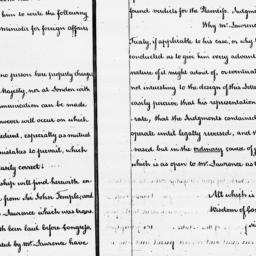 him to write the following
minister for foreign affairs
no person here properly charged
Majesty, nor at London with
communication can be made.
however will occur on which
expedient, especially as mutual
mistakes to prevail, which
easily correct:
ship will find herewith en
from Sir John Temple, and
Lawrence which was trans
been laid before Congress,
by Mr. Lawrence have
found verdicts for the Plaintifs. Judgm
Why Mr Lawrence
Treaty, if applicable to his case, or why t
conducted as to give him every advant
nature of it might admit of, or eventual
not interesting to the design of this Lette
easily perceive that his representation
rate, that the Judgments contained
operate until legally reversed, and t
versed but in the ordinary course of j
which is as open to Mr. Lawrence as t
All which is
Wisdom of Con